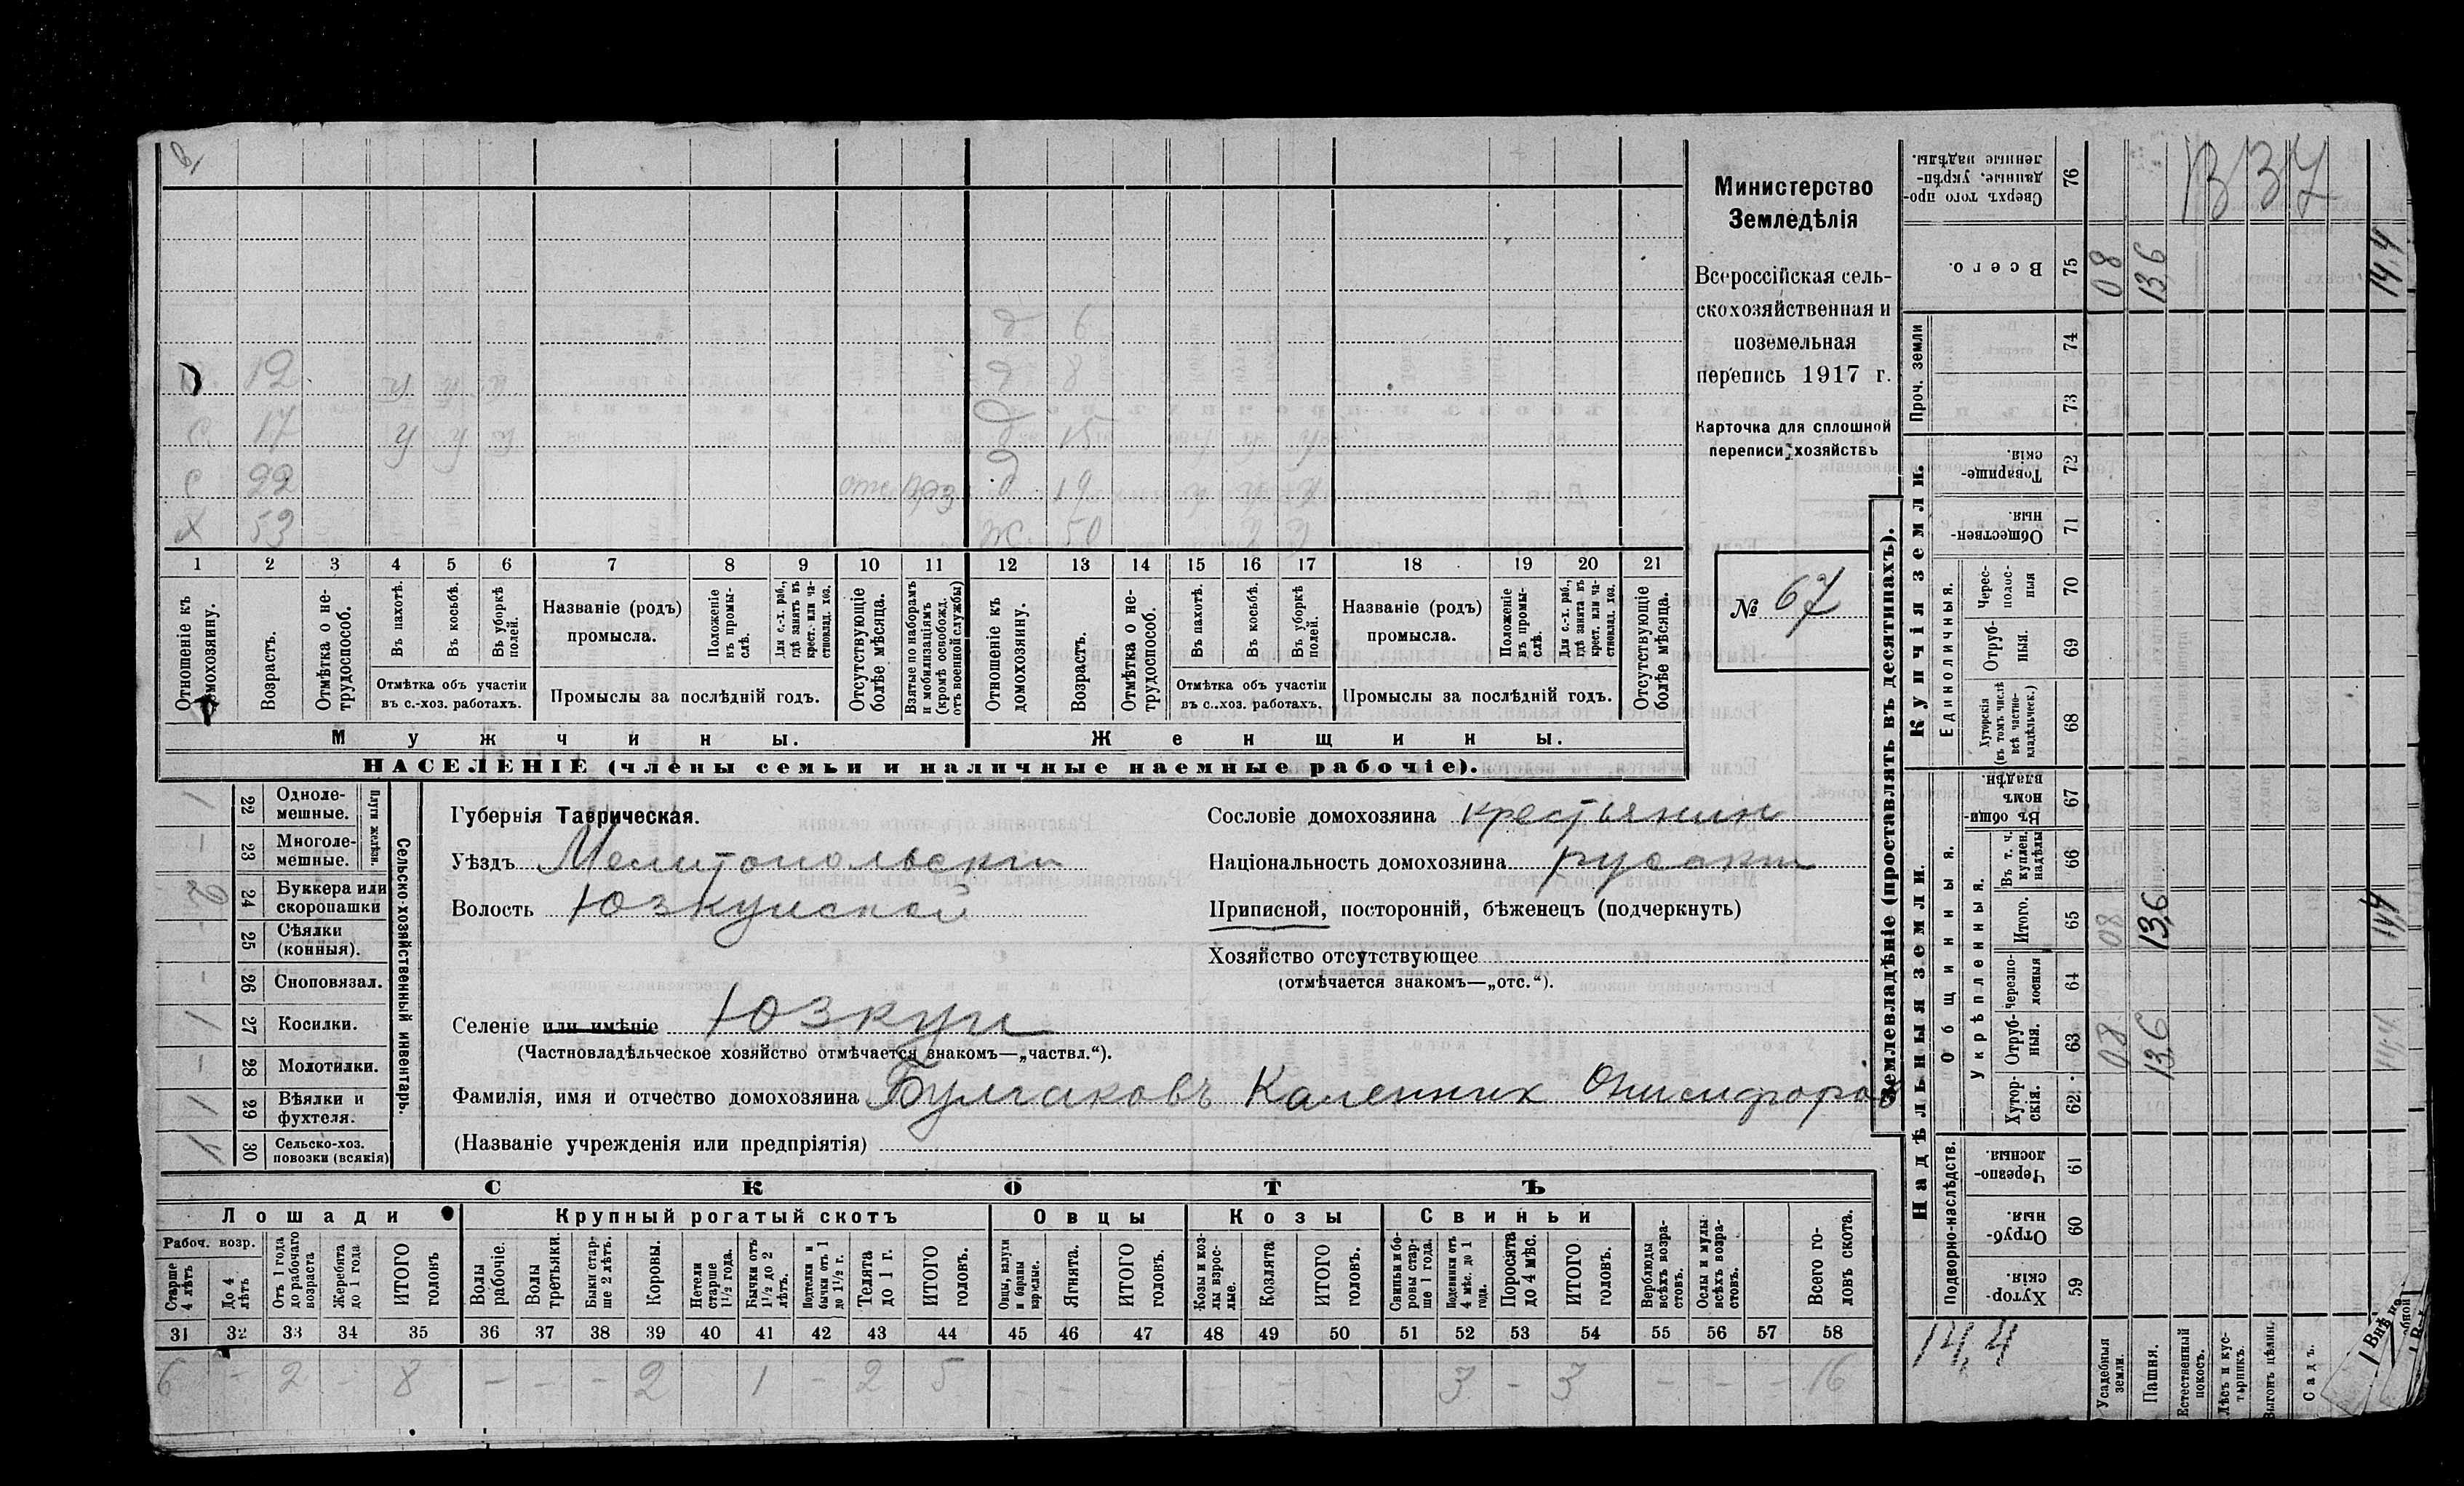 12
С 17 у у у
С 22
Х 53
д 6
д 8
д 15
д 19
ж 50
1 2 3 4 5 6 7 8 9 10 11 12 13 14 15 16 17 18 19 20 21
Отношеніе къ домохозяину.
Возрастъ.
Отмѣтка о не-трудоспособ.
Въ пахотѣ.
Въ косьбѣ.
Въ уборкѣ полей.
Отмѣтка объ участіи
въ с.-хоз. работахъ.
Названіе (родъ)
промысла.
Положеніе въ промы-слѣ.
Для с.-х. раб., гдѣ занятъ въ крест. или ча-стновлад. хоз.
Промыслы за послѣдній годъ.
Отсутствующіе болѣе мѣсяца.
Взятые по наборамъ и мобилизаціямъ (кромѣ освобожд. отъ военной службы)
Отношеніе къ домохозяину.
Возрастъ.
Отмѣтка о не-трудоспособ.
Въ пахотѣ.
Въ косьбѣ.
Въ уборкѣ полей.
Отмѣтка объ участіи
въ с.-хоз. работахъ.
Названіе (родъ)
промысла.
Положеніе въ промы-слѣ.
Для с.-х. раб., гдѣ занята въ крест. или ча-стновлад. хоз.
Промыслы за послѣдній годъ.
Отсутствующіе болѣе мѣсяца.
Мужчины.
Женщины.
НАСЕЛЕНІЕ (члены семьи и наличные наемные рабочіе).
Министерство
Земледѣлія
Всероссійская сель-
скохозяйственная и
поземельная
перепись 1917 г.
Карточка для сплошной
переписи хозяйствъ
№ 67
1 22 Одноле-мешные.
- 23 Многоле-мешные.
Плуги желѣзн.
2 24 Буккера или скоропашки
- 25 Сѣялки (конныя).
- 26 Сноповязал.
1 27 Косилки.
- 28 Молотилки.
1 29 Вѣялки и фухтеля.
30 Сельско-хоз. повозки (всякія)
Сельско-хозяйственный инвентарь.
Губернія Таврическая.
Уѣздъ Мелитопольскій
Волость Юзкуйской
Селеніе или имѣніе Юзкуи
(Частновладѣльческое хозяйство отмѣчается знакомъ—„частвл.“).
Фамилія, имя и отчество домохозяина Булгаковъ Каленник Онисифоров
(Названіе учрежденія или предпріятія)
Сословіе домохозяина крестьянин
Національность домохозяина
Приписной, посторонній, бѣженецъ (подчеркнуть)
Хозяйство отсутствующее
(отмѣчается знакомъ—„отс.“).
СКОТЪ
Лошади
Крупный рогатый скотъ
Овцы
Козы
Свиньи
Рабоч. возр.
Старше 4 лѣтъ
До 4 лѣтъ
Отъ 1 года до рабочаго возраста
Жеребята до 1 года
ИТОГО головъ
Волы рабочіе.
Волы третьяки.
Быки стар-ше 2 лѣтъ.
Коровы.
Нетели старше 1½ года.
Бычки отъ 1½ до 2 лѣтъ.
Подтелки и бычки отъ 1 до 1½ г.
Телята до 1 г.
ИТОГО головъ.
Овцы, валухи и бараны взрослые.
Ягнята.
ИТОГО головъ.
Козы и коз-лы взрос-лые.
Козлята
ИТОГО головъ.
Свиньи и бо-ровы стар-ше 1 года.
Подсвинки отъ 4 мѣс. до 1 года.
Поросята до 4 мѣс.
ИТОГО головъ.
Верблюды всѣхъ возра-стовъ.
Ослы и мулы всѣхъ возра-стовъ.
Всего го-ловъ скота.
31 32 33 34 35 36 37 38 39 40 41 42 43 44 45 46 47 48 49 50 51 52 53 54 55 56 57 58
6 - 2 - 8 - - - 2 1 - 2 5 - - - - - 3 - 3 - - - 16
Землевладѣніе (проставлять въ десятинахъ).
Купчія земли.
Надѣльныя земли.
Сверхъ того про-данные, укрѣп-ленные надѣлы. 76
Всего. 75 08 13,6 14,4
Проч. земли 74 73
Товарище-скія. 72
Обществен-ныя. 71
Единоличныя.
Черес-полос-ныя 70
Отруб-ныя. 69
Хуторскія (въ томъ числѣ всѣ частно-владѣльческ.) 68
Общинныя.
Въ общин-номъ владѣн. 67
Укрѣпленныя.
Въ т. ч. куплен. надѣлы 66
Итого. 65 08 13,6 14,4
Черезпо-лосныя 64
Отруб-ныя. 63 08 13,6 14,4
Хутор-скія. 62
Подворно-наслѣдств.
Черезпо-лосныя. 61
Отруб-ныя. 60
Хутор-скія. 59
14,4
Усадебныя земли.
Пашня.
Естественный покосъ.
Лѣсъ и кус-тарникъ.
Выгонъ цѣлин.
Садъ.